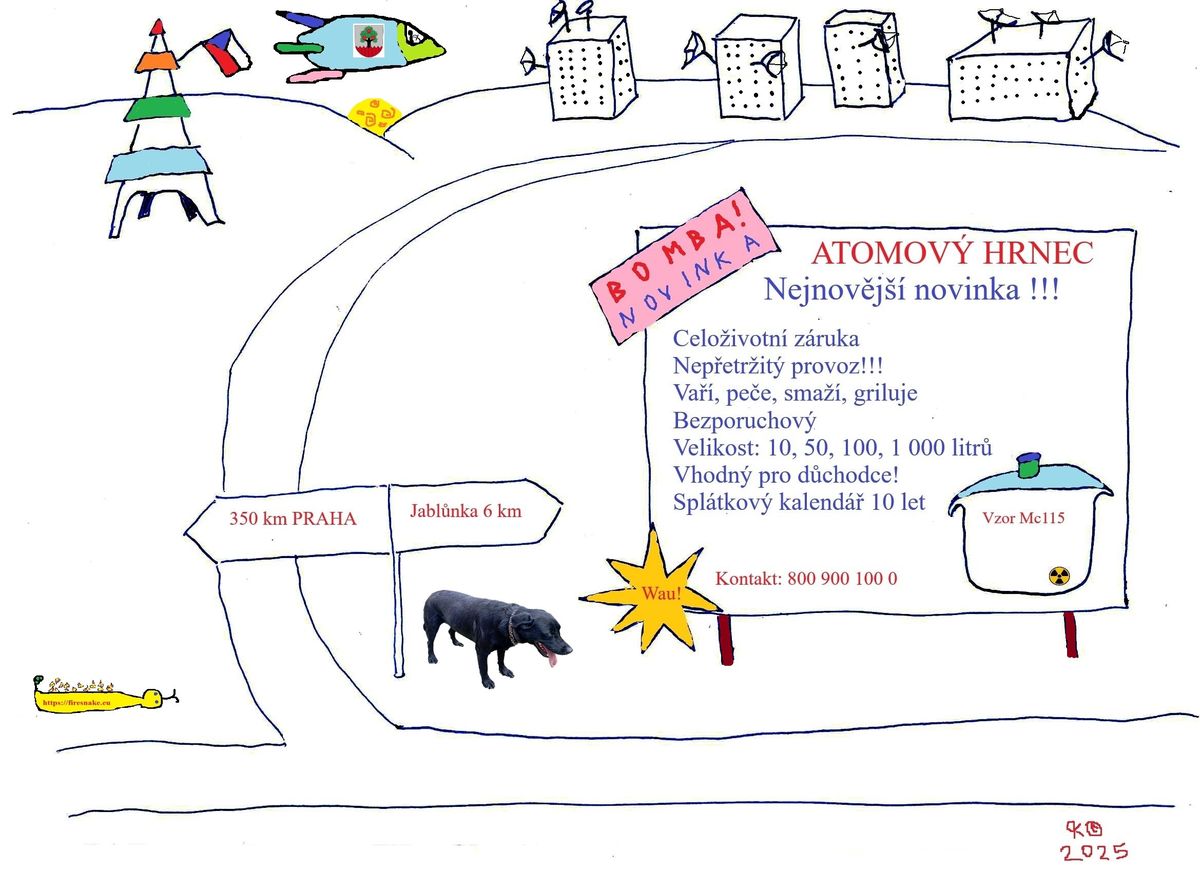 BOMBA!
NOVINKA
ATOMOVÝ HRNEC
Nejnovější novinka !!!
Celoživotní záruka
Nepřetržitý provoz!!!
Vaří, peče, smaží, griluje
Bezporuchový
Velikost: 10, 50, 100, 1 000 litrů
Vhodný pro důchodce!
Splátkový kalendář 10 let
Vzor Mc115
350 km PRAHA
Jablůnka 6 km
Wau!
Kontakt: 800 900 100 0
https://firesnake.eu
2025